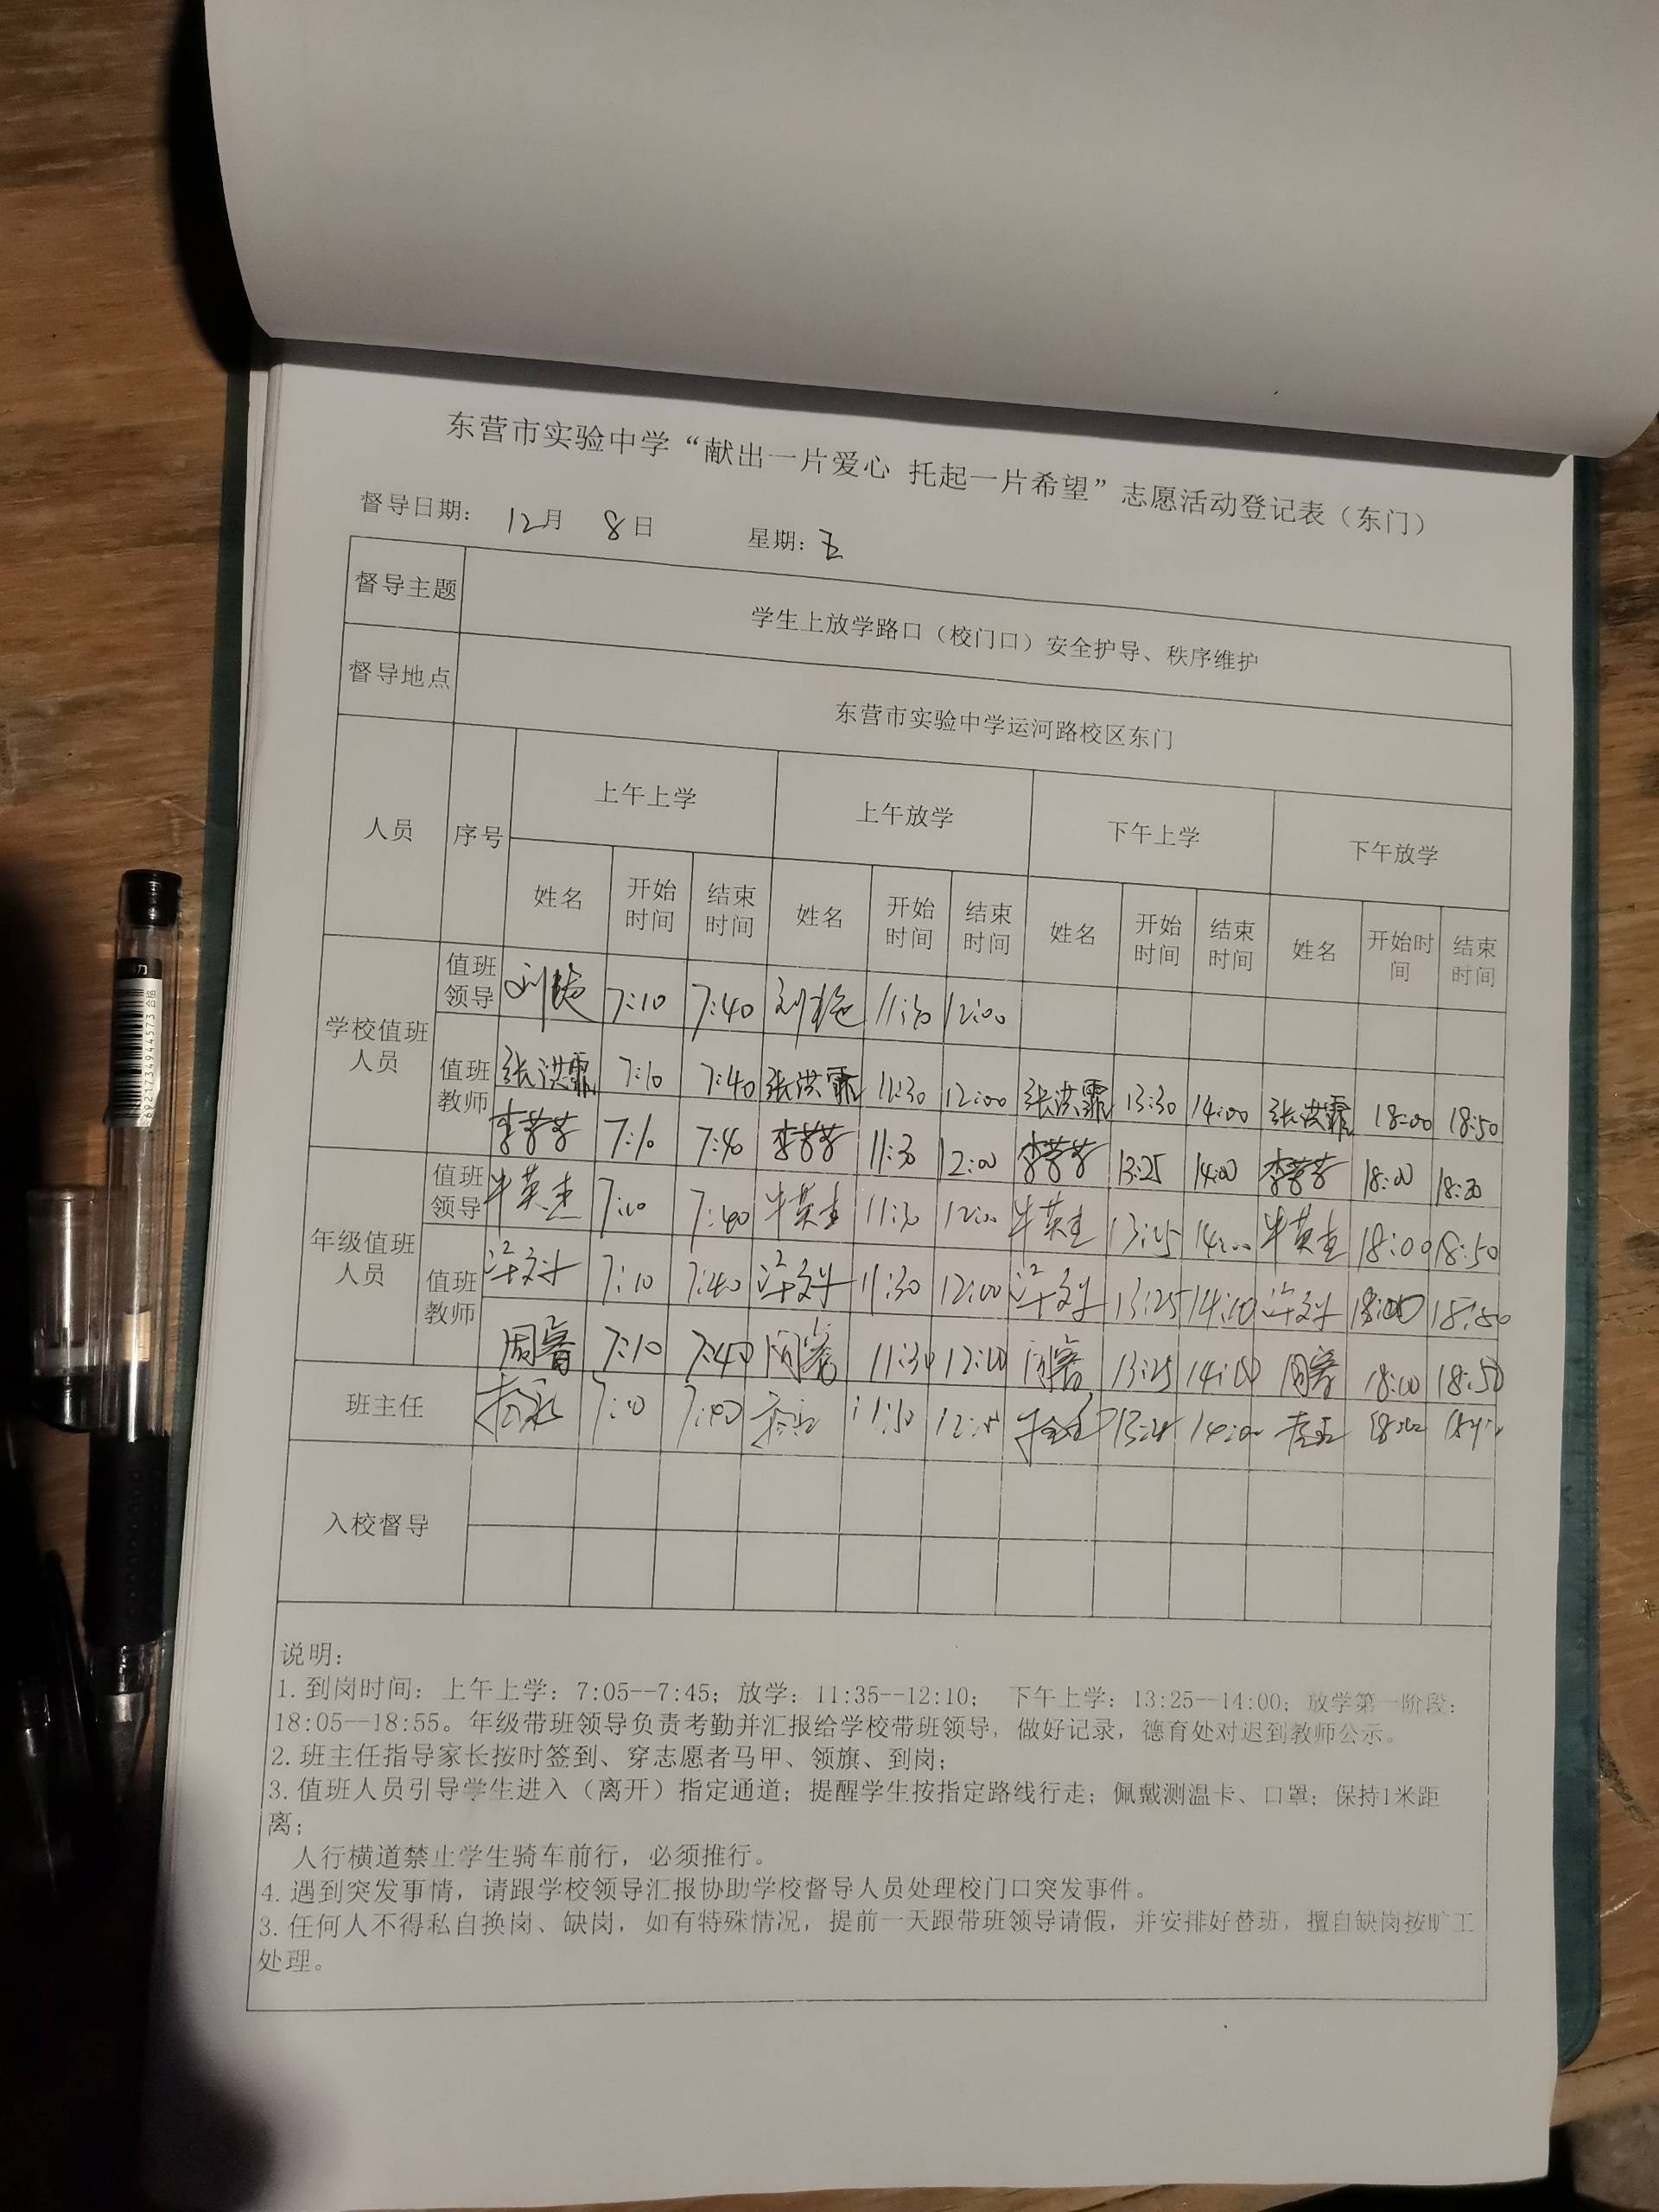 东营市实验中学“献出一片爱心 托起一片希望”志愿活动登记表（东门）
督导日期： 12月 8日 星期：五
督导主题 学生上放学路口（校门口）安全护导、秩序维护
督导地点 东营市实验中学运河路校区东门
人员 序号 上午上学 上午放学 下午上学 下午放学
姓名 开始时间 结束时间 姓名 开始时间 结束时间 姓名 开始时间 结束时间 姓名 开始时间 结束时间
学校值班人员 值班领导 7:10 7:40 11:30 12:00
值班教师 张洪霏 7:10 7:40 张洪霏 11:30 12:00 张洪霏 13:30 14:00 张洪霏 18:00 18:50
李芳芳 7:10 7:40 李芳芳 11:30 12:00 李芳芳 13:25 14:00 李芳芳 18:00 18:30
年级值班人员 值班领导 牛英杰 7:10 7:40 牛英杰 11:30 12:00 牛英杰 13:25 14:00 牛英杰 18:00 18:50
值班教师 7:10 7:40 11:30 12:00 13:25 14:00 18:00 18:50
周睿 7:10 7:40 周睿 11:30 12:00 周睿 13:25 14:00 周睿 18:00 18:50
班主任 7:10 7:40 14:00
入校督导
说明：
1. 到岗时间：上午上学：7:05--7:45；放学：11:35--12:10； 下午上学：13:25--14:00；放学第一阶段：
18:05--18:55。年级带班领导负责考勤并汇报给学校带班领导，做好记录，德育处对迟到教师公示。
2. 班主任指导家长按时签到、穿志愿者马甲、领旗、到岗；
3. 值班人员引导学生进入（离开）指定通道；提醒学生按指定路线行走；佩戴测温卡、口罩；保持1米距
离；
人行横道禁止学生骑车前行，必须推行。
4. 遇到突发事情，请跟学校领导汇报协助学校督导人员处理校门口突发事件。
3. 任何人不得私自换岗、缺岗，如有特殊情况，提前一天跟带班领导请假，并安排好替班，擅自缺岗按旷工
处理。
6921734944573 合格